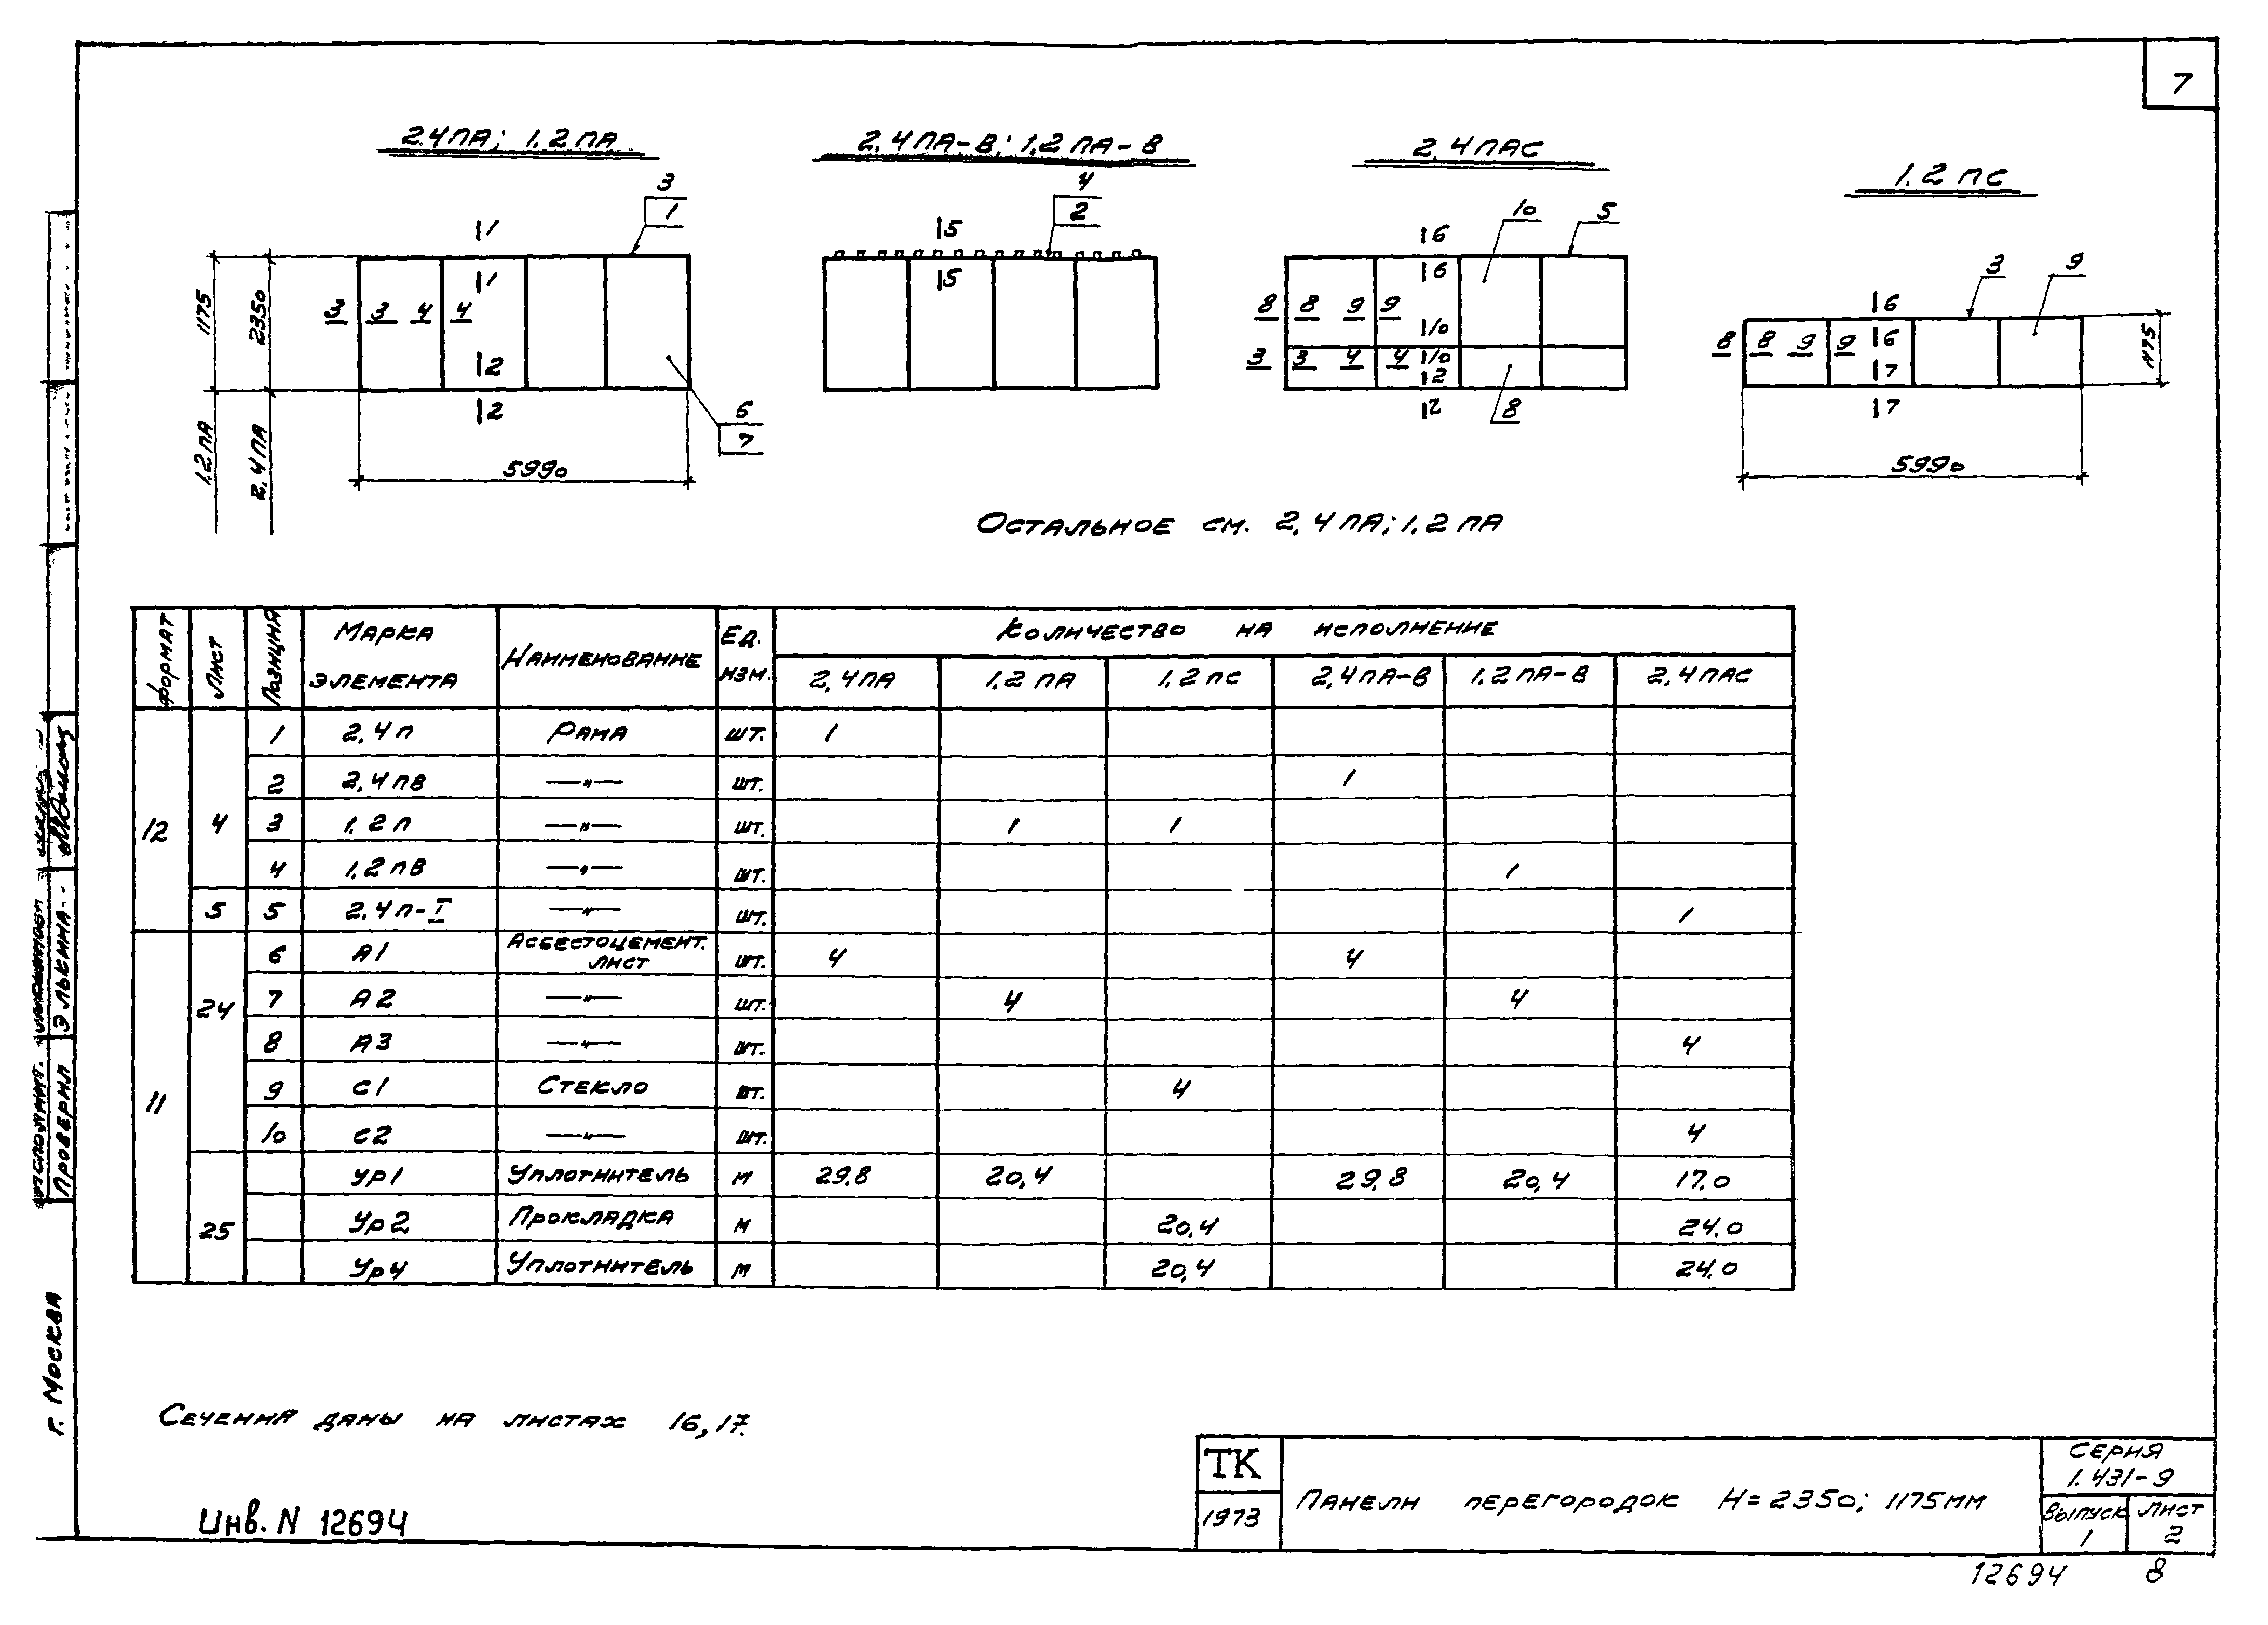 7
2.4ПА; 1.2ПА
2,4ПА-В; 1.2ПА-В
2,4ПАС
1.2ПС
3
1
4
2
10
5
3
9
1 1
1 1
3 3 4 4
2
2
6
7
1175
2350
1.2ПА
2,4ПА
5990
5
5
6
6
8 8 9 9
10
10
3 3 4 4
2
2
8
6
6
8 8 9 9
7
7
1175
5990
Остальное см. 2,4ПА; 1.2ПА
формат
Лист
Позиция
Марка элемента
Наименование
Ед. изм.
Количество на исполнение
2,4ПА 1.2ПА 1.2ПС 2,4ПА-В 1.2ПА-В 2,4ПАС
12 4 1 2,4П Рама шт. 1
2 2,4ПВ —"— шт. 1
3 1.2П —"— шт. 1 1
4 1.2ПВ —"— шт. 1
5 5 2.4П-I —"— шт. 1
11 24 6 А1 Асбестоцемент. лист шт. 4 4
7 А2 —"— шт. 4 4
8 А3 —"— шт. 4
9 С1 Стекло шт. 4
10 С2 —"— шт. 4
25 Ур1 Уплотнитель м 29.8 20,4 29,8 20,4 17.0
Ур2 Прокладка м 20,4 24.0
Ур4 Уплотнитель м 20,4 24.0
Сечения даны на листах 16, 17.
Инв. N 12694
ТК
1973
Панели перегородок H=2350; 1175мм
Серия
1.431-9
Выпуск
1
Лист
2
12694 8
Проверил Элькина
г. Москва